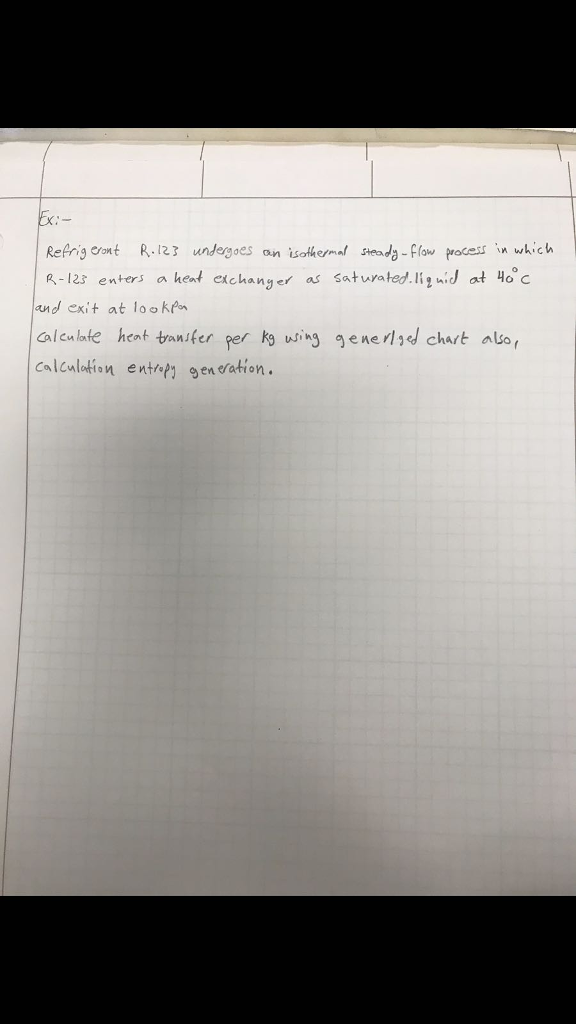 Ex:-
Refrigerant R.123 undergoes an isothermal steady-flow process in which
R-123 enters a heat exchanger as saturated.liquid at 40°C
and exit at 100kPa
Calculate heat transfer per kg using generlged chart also,
Calculation entropy generation.